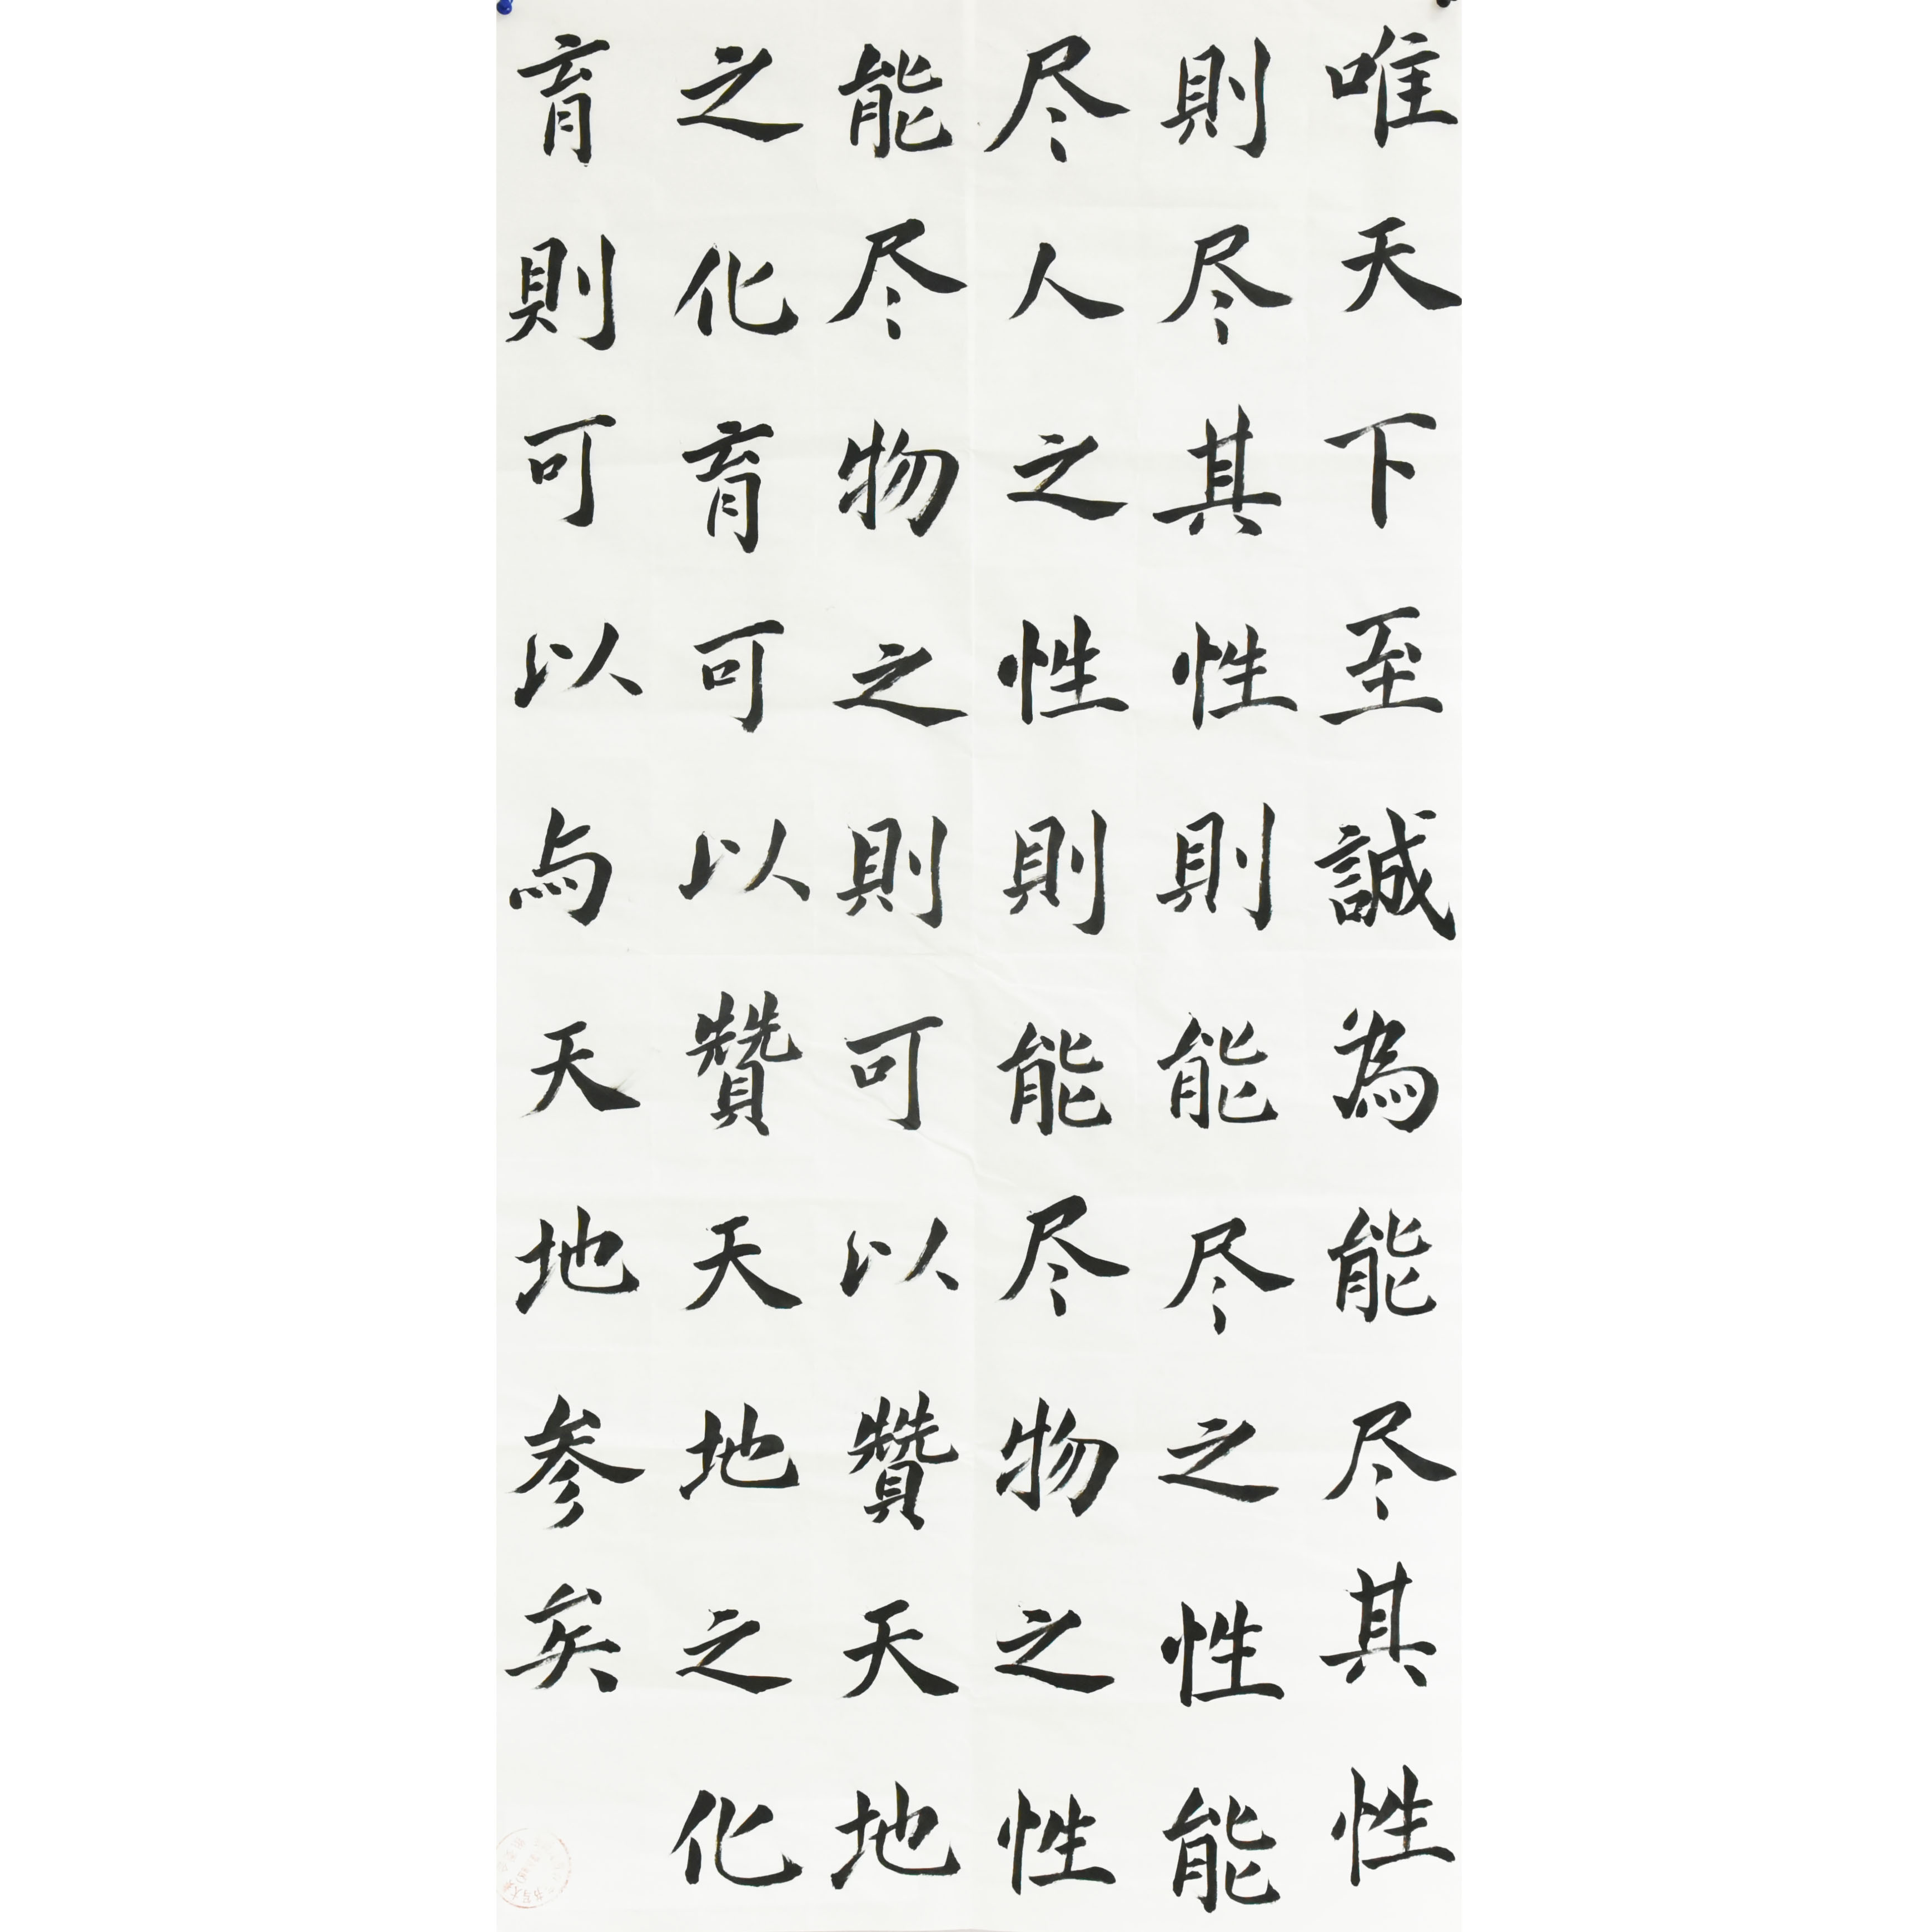 唯天下至誠為能尽其性
則尽其性則能尽之性能
尽人之性則能尽物之性
能尽物之則可以贊天地
之化育可以贊天地之化
育則可以与天地参矣